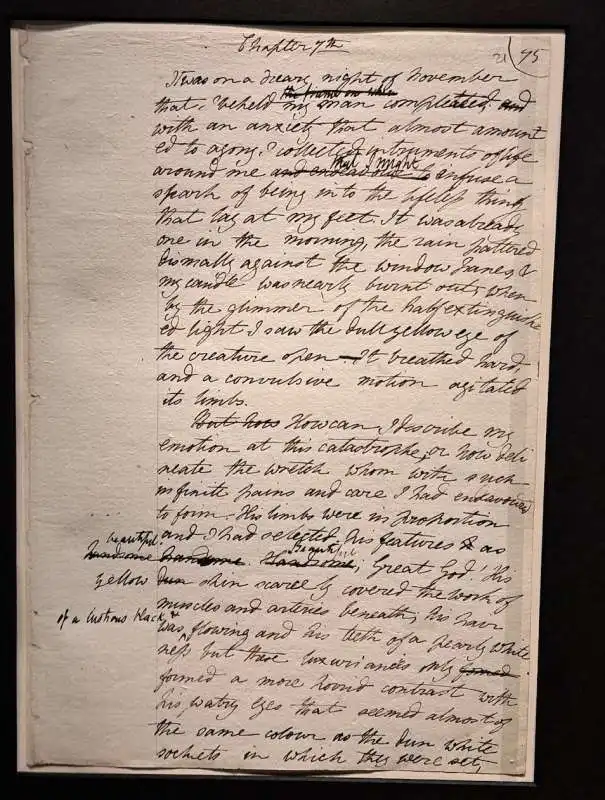 Chapter 7th
21
75
It was on a dreary night of November
the frame on whic
that I beheld my man compleated and
with an anxiety that almost amount
ed to agony I collected instruments of life
that I might
around me and endeavour to infuse a
spark of being into the lifeless thing
that lay at my feet. It was already
one in the morning, the rain pattered
dismally against the window panes, &
my candle was nearly burnt out, when
by the glimmer of the half extinguish
ed light I saw the dull yellow eye of
the creature open — It breathed hard,
and a convulsive motion agitated
its limbs.
But how How can I describe my
emotion at this catastrophe, or how deli
neate the wretch whom with such
infinite pains and care I had endeavoured
to form. His limbs were in proportion
and I had selected his features & as
beautiful Beautiful
handsome handsome. Handsome; Great God! His
yellow dun skin scarcely covered the work of
muscles and arteries beneath; his hair
of a lustrous black, &
was flowing and his teeth of a pearly white
ness but these luxuriances only formed
formed a more horrid contrast with
his watry eyes that seemed almost of
the same colour as the dun white
sockets in which they were set,